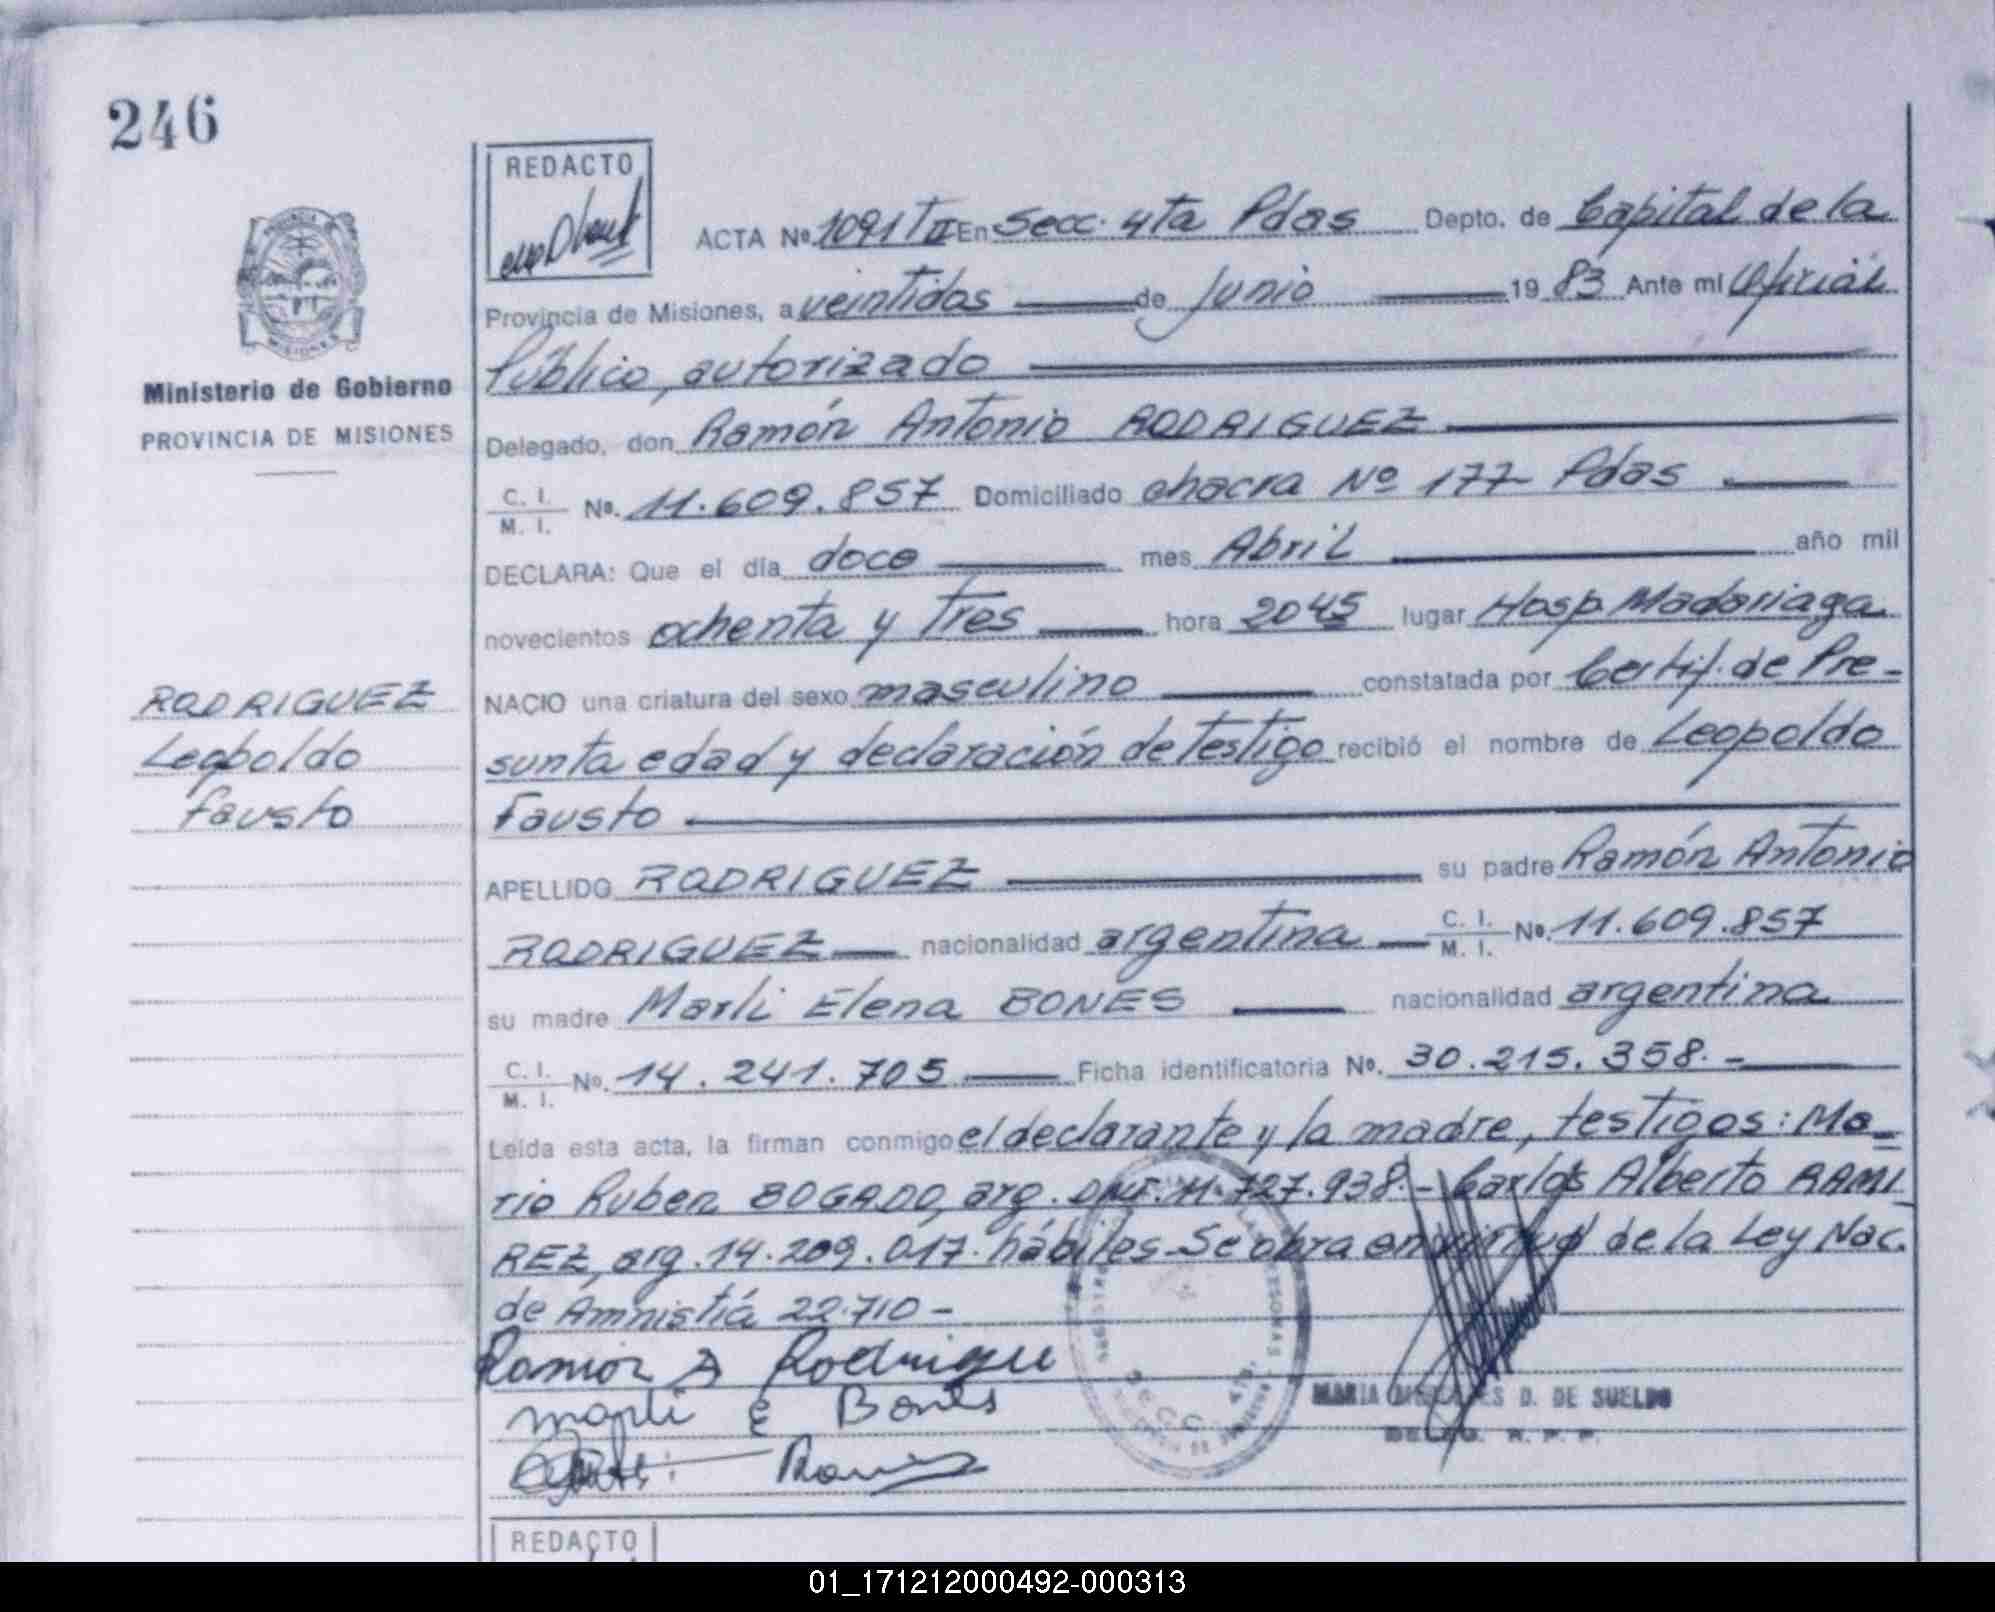 246
REDACTO
ACTA Nº. 1091 T II En Secc. 4ta Pdas Depto. de Capital de la
Provincia de Misiones, a veintidos de Junio 19 83 Ante mi Oficial
Público, autorizado
Ministerio de Gobierno
PROVINCIA DE MISIONES
Delegado, don Ramón Antonio RODRIGUEZ
C. I.
M. I. Nº. 11.609.857 Domiciliado chacra Nº 177 Pdas
DECLARA: Que el día doce mes Abril año mil
novecientos ochenta y Tres hora 2045 lugar Hosp. Madariaga
NACIO una criatura del sexo masculino constatada por Certif. de Pre-
sunta edad y declaración de Testigo recibió el nombre de Leopoldo
Fausto
RODRIGUEZ
Leopoldo
Fausto
APELLIDO RODRIGUEZ su padre Ramón Antonio
RODRIGUEZ nacionalidad argentina C. I.
M. I. Nº. 11.609.857
su madre Marli Elena BONES nacionalidad argentina
C. I.
M. I. Nº. 14.241.705 Ficha identificatoria Nº. 30.215.358.-
Leída esta acta, la firman conmigo el declarante y la madre, testigos: Ma-
rio Ruben BOGADO, arg. DNI. 11.727.938.- Carlos Alberto RAMI
REZ, arg. 14.209.017. hábiles. Se obra en virtud de la Ley Nac.
de Amnistiá 22.710-
Ramon A Rodrigue
Marli E Bones
MARIA D. DE SUELDO
R. P. P.
REDACTO
01_171212000492-000313